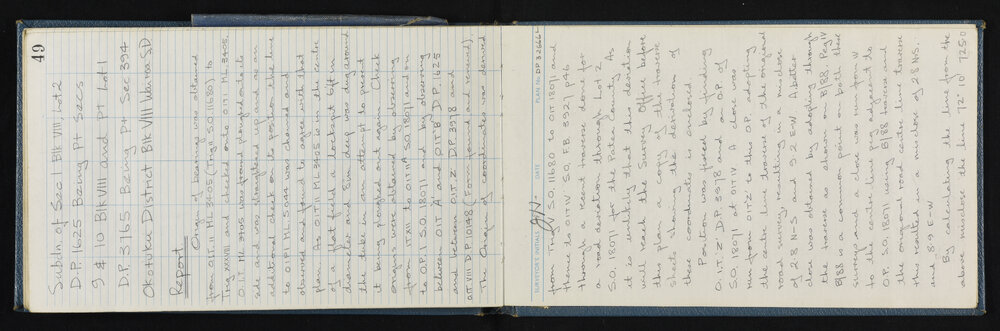 49
Subdn of Sec 1 Blk VIII, Lot 2
D.P. 1625 Being Pt Secs
9 & 10 Blk VIII and Pt Lot 1
D.P. 3765 Being Pt Sec 394
Okotuku District Blk VIII Wairoa S.D
Report
Origin of bearing was obtained
from O.I.T. II ML 3405 (Trig I S.O. 11680) to
Trig XXXVIII and checked onto O.I.T. I ML 3405.
O.I.T. I ML 3405 was found ploughed onto its
side and was straightened up and as an
additional check on its position the line
to O.I.P. I ML 5394 was chained and
observed and found to agree with that
plan. As O.I.T. II ML 3405 is in the centre
of a flat field a locspit 4ft in
diameter and 8in deep was dug around
the tube in an attempt to prevent
it being ploughed out again. Check
origins were obtained by observing
from IT XII to O.I.T. IV S.O. 18071 and on
to O.P. I S.O. 18071 and by observing
between O.I.T. A and O.I.T. 'B' D.P. 1625
and between O.I.T. Z D.P. 3978 and
O.I.T. VII D.P. 10148 (Formerly found and renewed)
The Origin of coordinates was derived
SURVEYOR'S INITIALS
DATE
PLAN No. D.P. 32666
from Trig I S.O. 11680 to O.I.T. 18071 and
thence to O.I.T. IV S.O. F.B. 3921 p 46
through a recent traverse done for
a road deviation through Lot 2
S.O. 18071 for the Patea County. As
it is unlikely that this deviation
will reach the Survey Office before
this plan a copy of the traverse
sheets showing the derivation of
these coordinates is enclosed.
Position was fixed by finding
O.I.T. 'Z' D.P. 3978 and an O.P. of
S.O. 18071 at O.I.T. IV A close was
run from O.I.T. 'Z' to this O.P. adopting
the centre line traverse of the original
road survey resulting in a misclose
of 2.8 N-S and 9.2 E-W A better
close was obtained by adopting through
the traverse as shown on B/88. Peg IV
B/88 is a common point on both these
surveys and a close was run from IV
to the centre line peg adjacent to
O.P. S.O. 18071 using B/88 traverse and
the original road centre line traverse
this resulted in a misclose of 2.8 N-S.
and 8.9 E-W
By calculating the line from the
above misclose the line 72° 10' 725.0